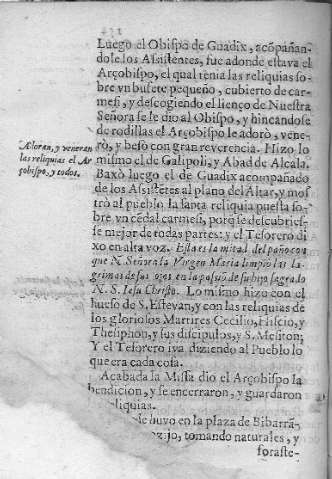 Luego el Obispo de Guadix, acõpañan-
dole los Assistentes, fue adonde estava el
Arçobispo, el qual tenia las reliquias so-
bre vn bufete pequeño, cubierto de car-
mesi, y descogiendo el lienço de Nuestra
Señora se le dio al Obispo, y hincandose
de rodillas el Arçobispo le adorò, vene-
rò, y besò con gran reverencia. Hizo lo
mismo el de Galipoli, y Abad de Alcala.
Baxò luego el de Guadix acompañado
de los Assistẽtes al plano del Altar, y mos
trò al pueblo la santa reliquia puesta so-
bre vn cẽdal carmesi, porq̃ se descubries-
se mejor de todas partes: y el Tesorero di
xo en alta voz. Esta es la mitad del paño con
que N. Señora la Virgen Maria limpiò las la
grimas de sus ojos en la passiõ de su hijo sagrado
N. S. Iesu Christo. Lo mismo hizo con el
hueso de S. Estevan, y con las reliquias de
los gloriosos Martires Cecilio, Hiscio, y
Thesiphon, y sus discipulos, y S. Mesiton;
Y el Tesorero iva diziendo al Pueblo lo
que era cada cosa.
Acabada la Missa dio el Arçobispo la
bendicion, y se encerraron, y guardaron
reliquias.
huvo en la plaza de Bibarrã-
jo, tomando naturales, y
foraste-
Adoran, y veneran
las reliquias el Ar
çobispo, y todos.